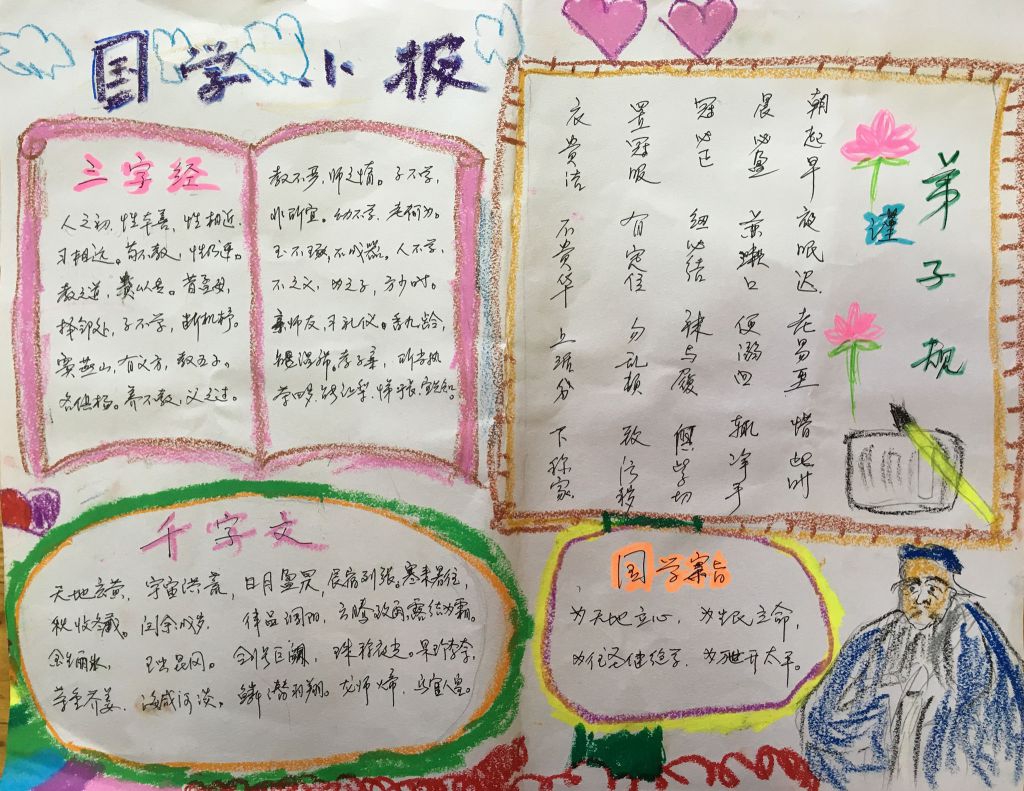 国学小报
三字经
人之初，性本善，性相近，
习相远。苟不教，性乃迁。
教之道，贵以专。昔孟母，
择邻处，子不学，断机杼。
窦燕山，有义方，教五子，
名俱扬。养不教，父之过。
教不严，师之惰。子不学，
非所宜。幼不学，老何为。
玉不琢，不成器。人不学，
不知义，为人子，方少时。
亲师友，习礼仪。香九龄，
能温席。孝于亲，所当执
融四岁，能让梨，悌于长，宜先知。
弟子规
谨
朝起早 夜眠迟 老易至 惜此时
晨必盥 兼漱口 便溺回 辄净手
冠必正 纽必结 袜与履 俱紧切
置冠服 有定位 勿乱顿 致污秽
衣贵洁 不贵华 上循分 下称家
千字文
天地玄黄，宇宙洪荒，日月盈昃，辰宿列张。寒来暑往，
秋收冬藏。闰余成岁，律吕调阳，云腾致雨，露结为霜。
金生丽水，玉出昆冈。剑号巨阙，珠称夜光。果珍李柰，
菜重芥姜，海咸河淡。鳞潜羽翔。龙师火帝，鸟官人皇。
国学宗旨
为天地立心，为生民立命，
为往圣继绝学，为世开太平。